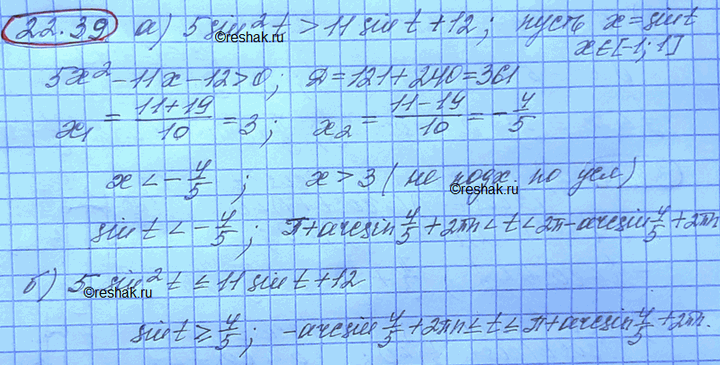 22.39 а) 5 sin²t > 11 sin t + 12; пусть x = sin t
x ∈ [-1; 1]
5x² - 11x - 12 > 0; D = 121 + 240 = 361
x₁ = (11+19)/10 = 3; x₂ = (11-19)/10 = -4/5
x < -4/5; x > 3 (не подх. по усл)
sin t < -4/5; π + arcsin 4/5 + 2πn < t < 2π - arcsin 4/5 + 2πn
б) 5 sin²t ≤ 11 sin t + 12
sin t ≥ 4/5; -arcsin 4/5 + 2πn ≤ t ≤ π + arcsin 4/5 + 2πn.
©reshak.ru
©reshak.ru
©reshak.ru